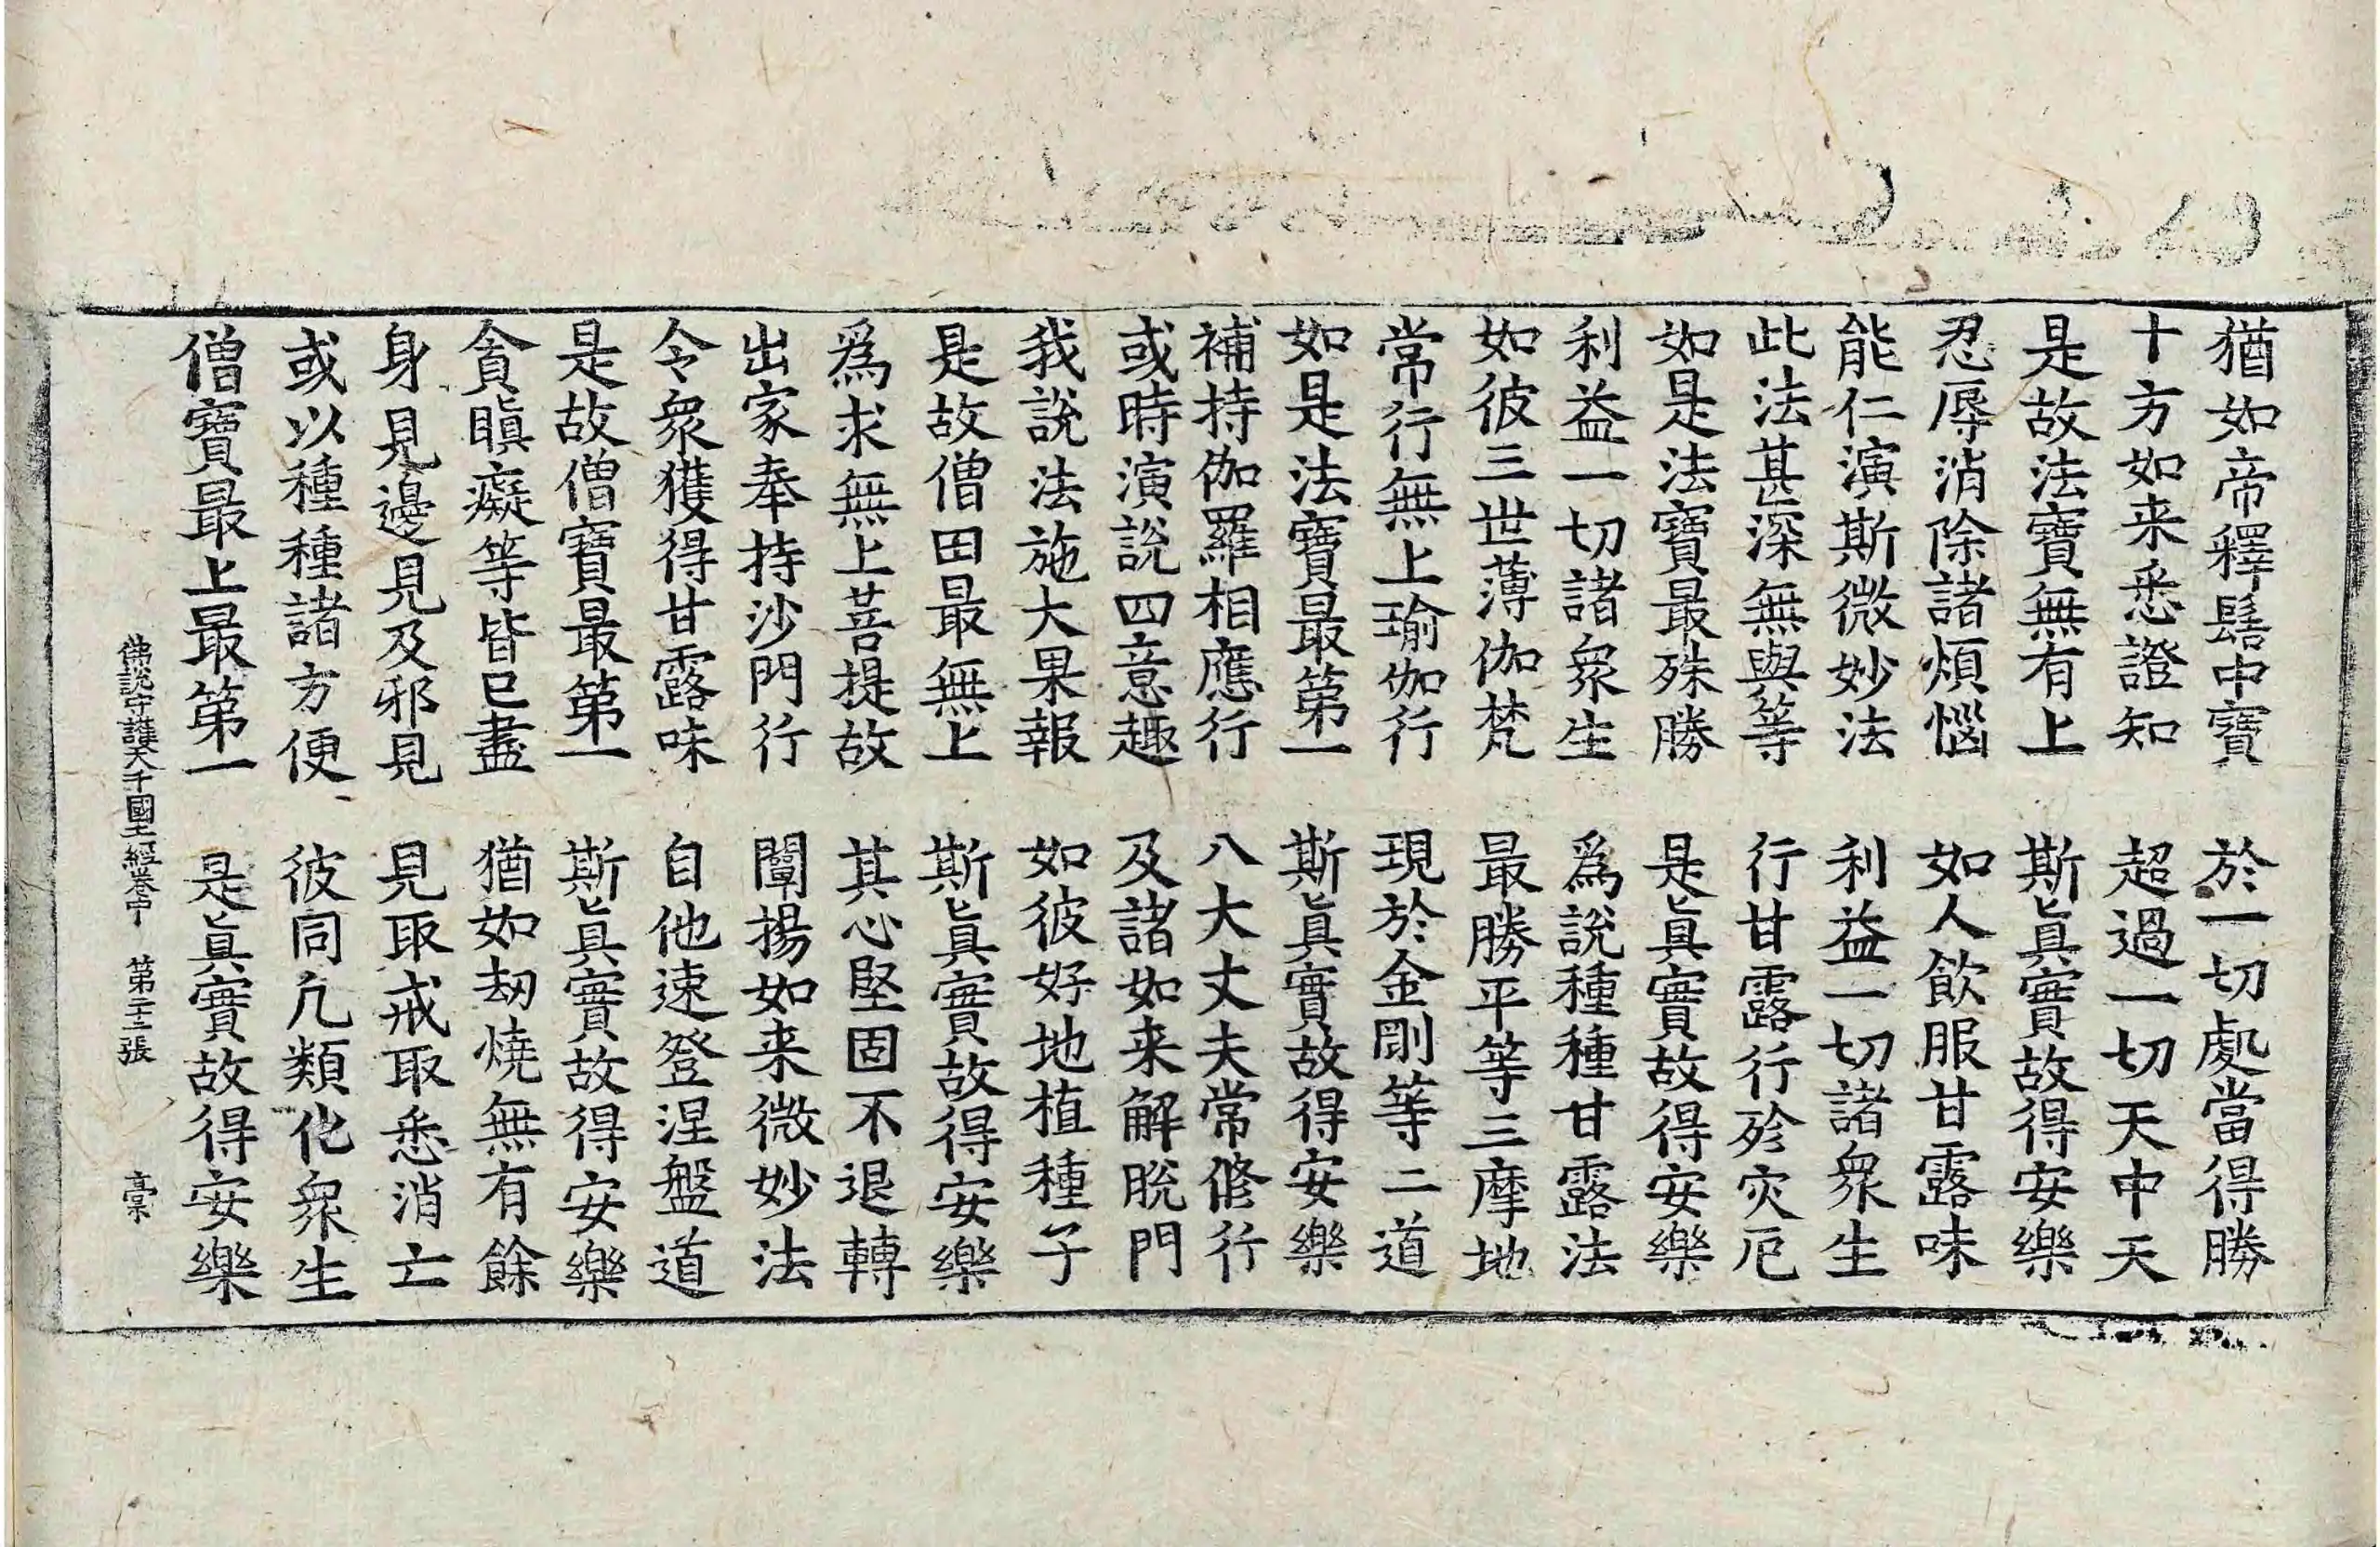 猶如帝釋髻中寶　於一切處當得勝
十方如来悉證知　超過一切天中天
是故法寶無有上　斯眞實故得安樂
忍辱消除諸煩惱　如人飮服甘露味
能仁演斯微妙法　利益一切諸衆生
此法甚深無與等　行甘露行殄灾厄
如是法寶最殊勝　是眞實故得安樂
利益一切諸衆生　爲說種種甘露法
如彼三世薄伽梵　最勝平等三摩地
常行無上瑜伽行　現於金剛等二道
如是法寶最第一　斯眞實故得安樂
補持伽羅相應行　八大丈夫常修行
或時演說四意趣　及諸如来解脫門
我說法施大果報　如彼好地植種子
是故僧田最無上　斯眞實故得安樂
爲求無上菩提故　其心堅固不退轉
出家奉持沙門行　闡揚如来微妙法
令衆獲得甘露味　自他速登涅盤道
是故僧寶最第一　斯眞實故得安樂
貪瞋癡等皆已盡　猶如劫燒無有餘
身見邊見及邪見　見取戒取悉消亡
或以種種諸方便　彼同凢類化衆生
僧寶最上最第一　是眞實故得安樂
佛說守護大千國土經卷中　第二十二張